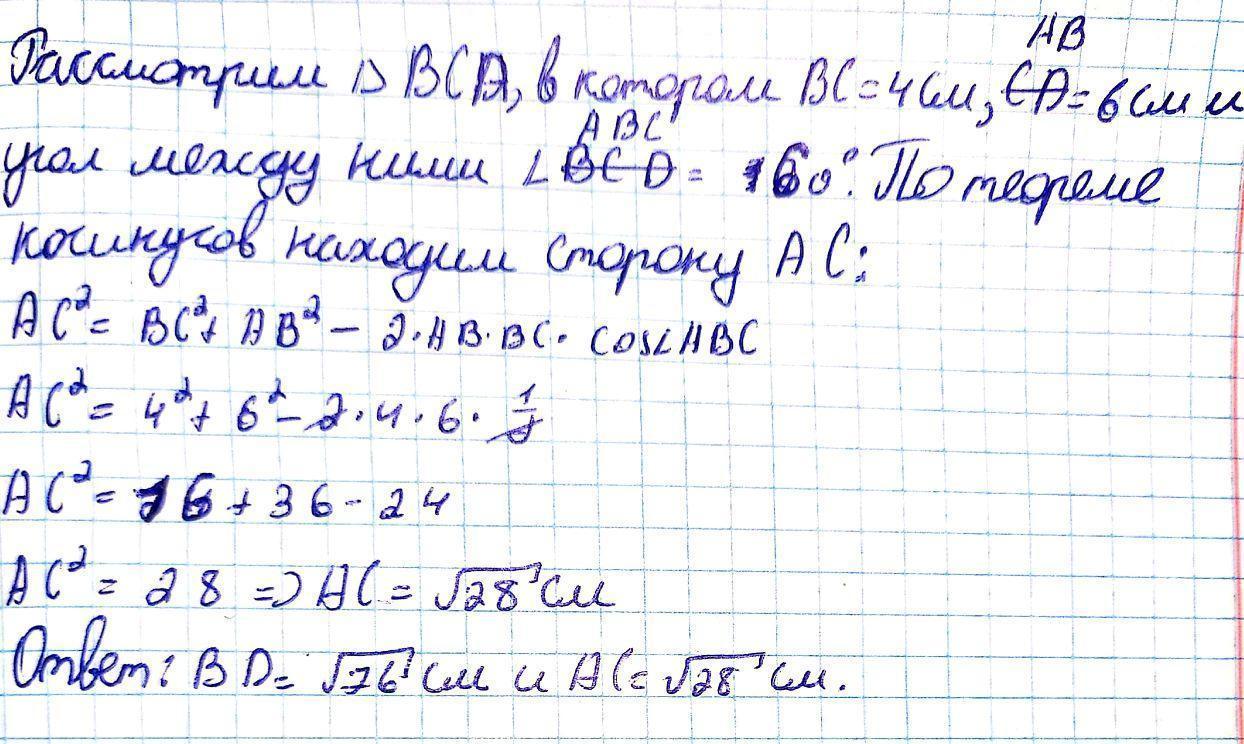 AB
Рассмотрим △ BCA, в котором BC = 4 см, CD = 6 см и
ABC
угол между ними ∠ BCD = 60°. По теореме
косинусов находим сторону AC:
AC² = BC² + AB² - 2·AB·BC· cos∠ABC
AC² = 4² + 6² - 2·4·6· 1/2
AC² = 16 + 36 - 24
AC² = 28 => AC = √28 см
Ответ: BD = √76 см и AC = √28 см.